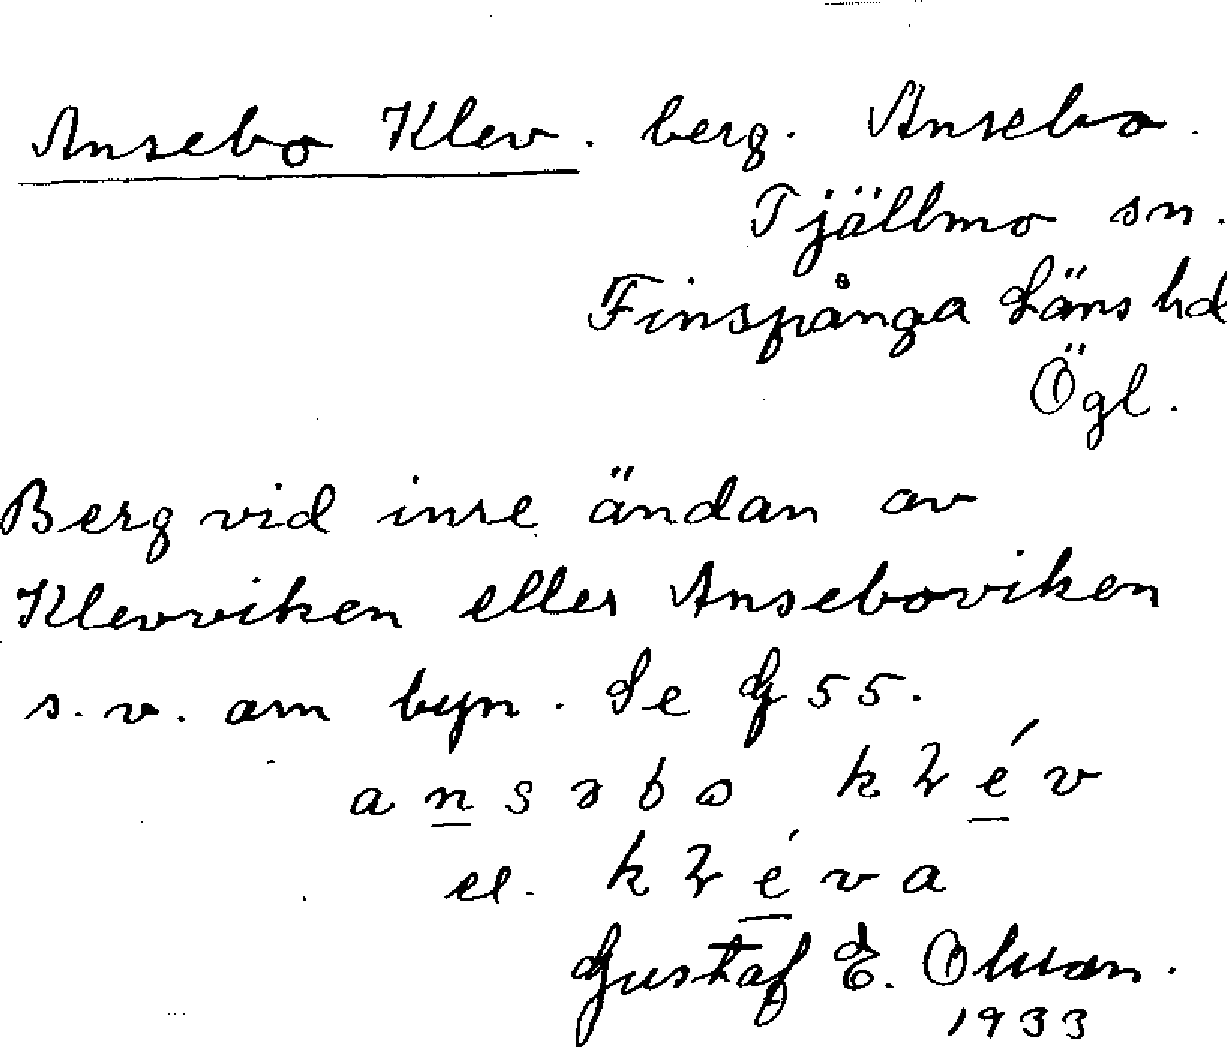 Ansebo Klev. berg. Ansebo.
Tjällmo sn.
Finspånga Läns hd
Ögl.
Berg vid inre ändan av
Klevviken eller Anseboviken
s. v. om byn. Se G 55.
el.
Gustaf E. Olsson.
1933